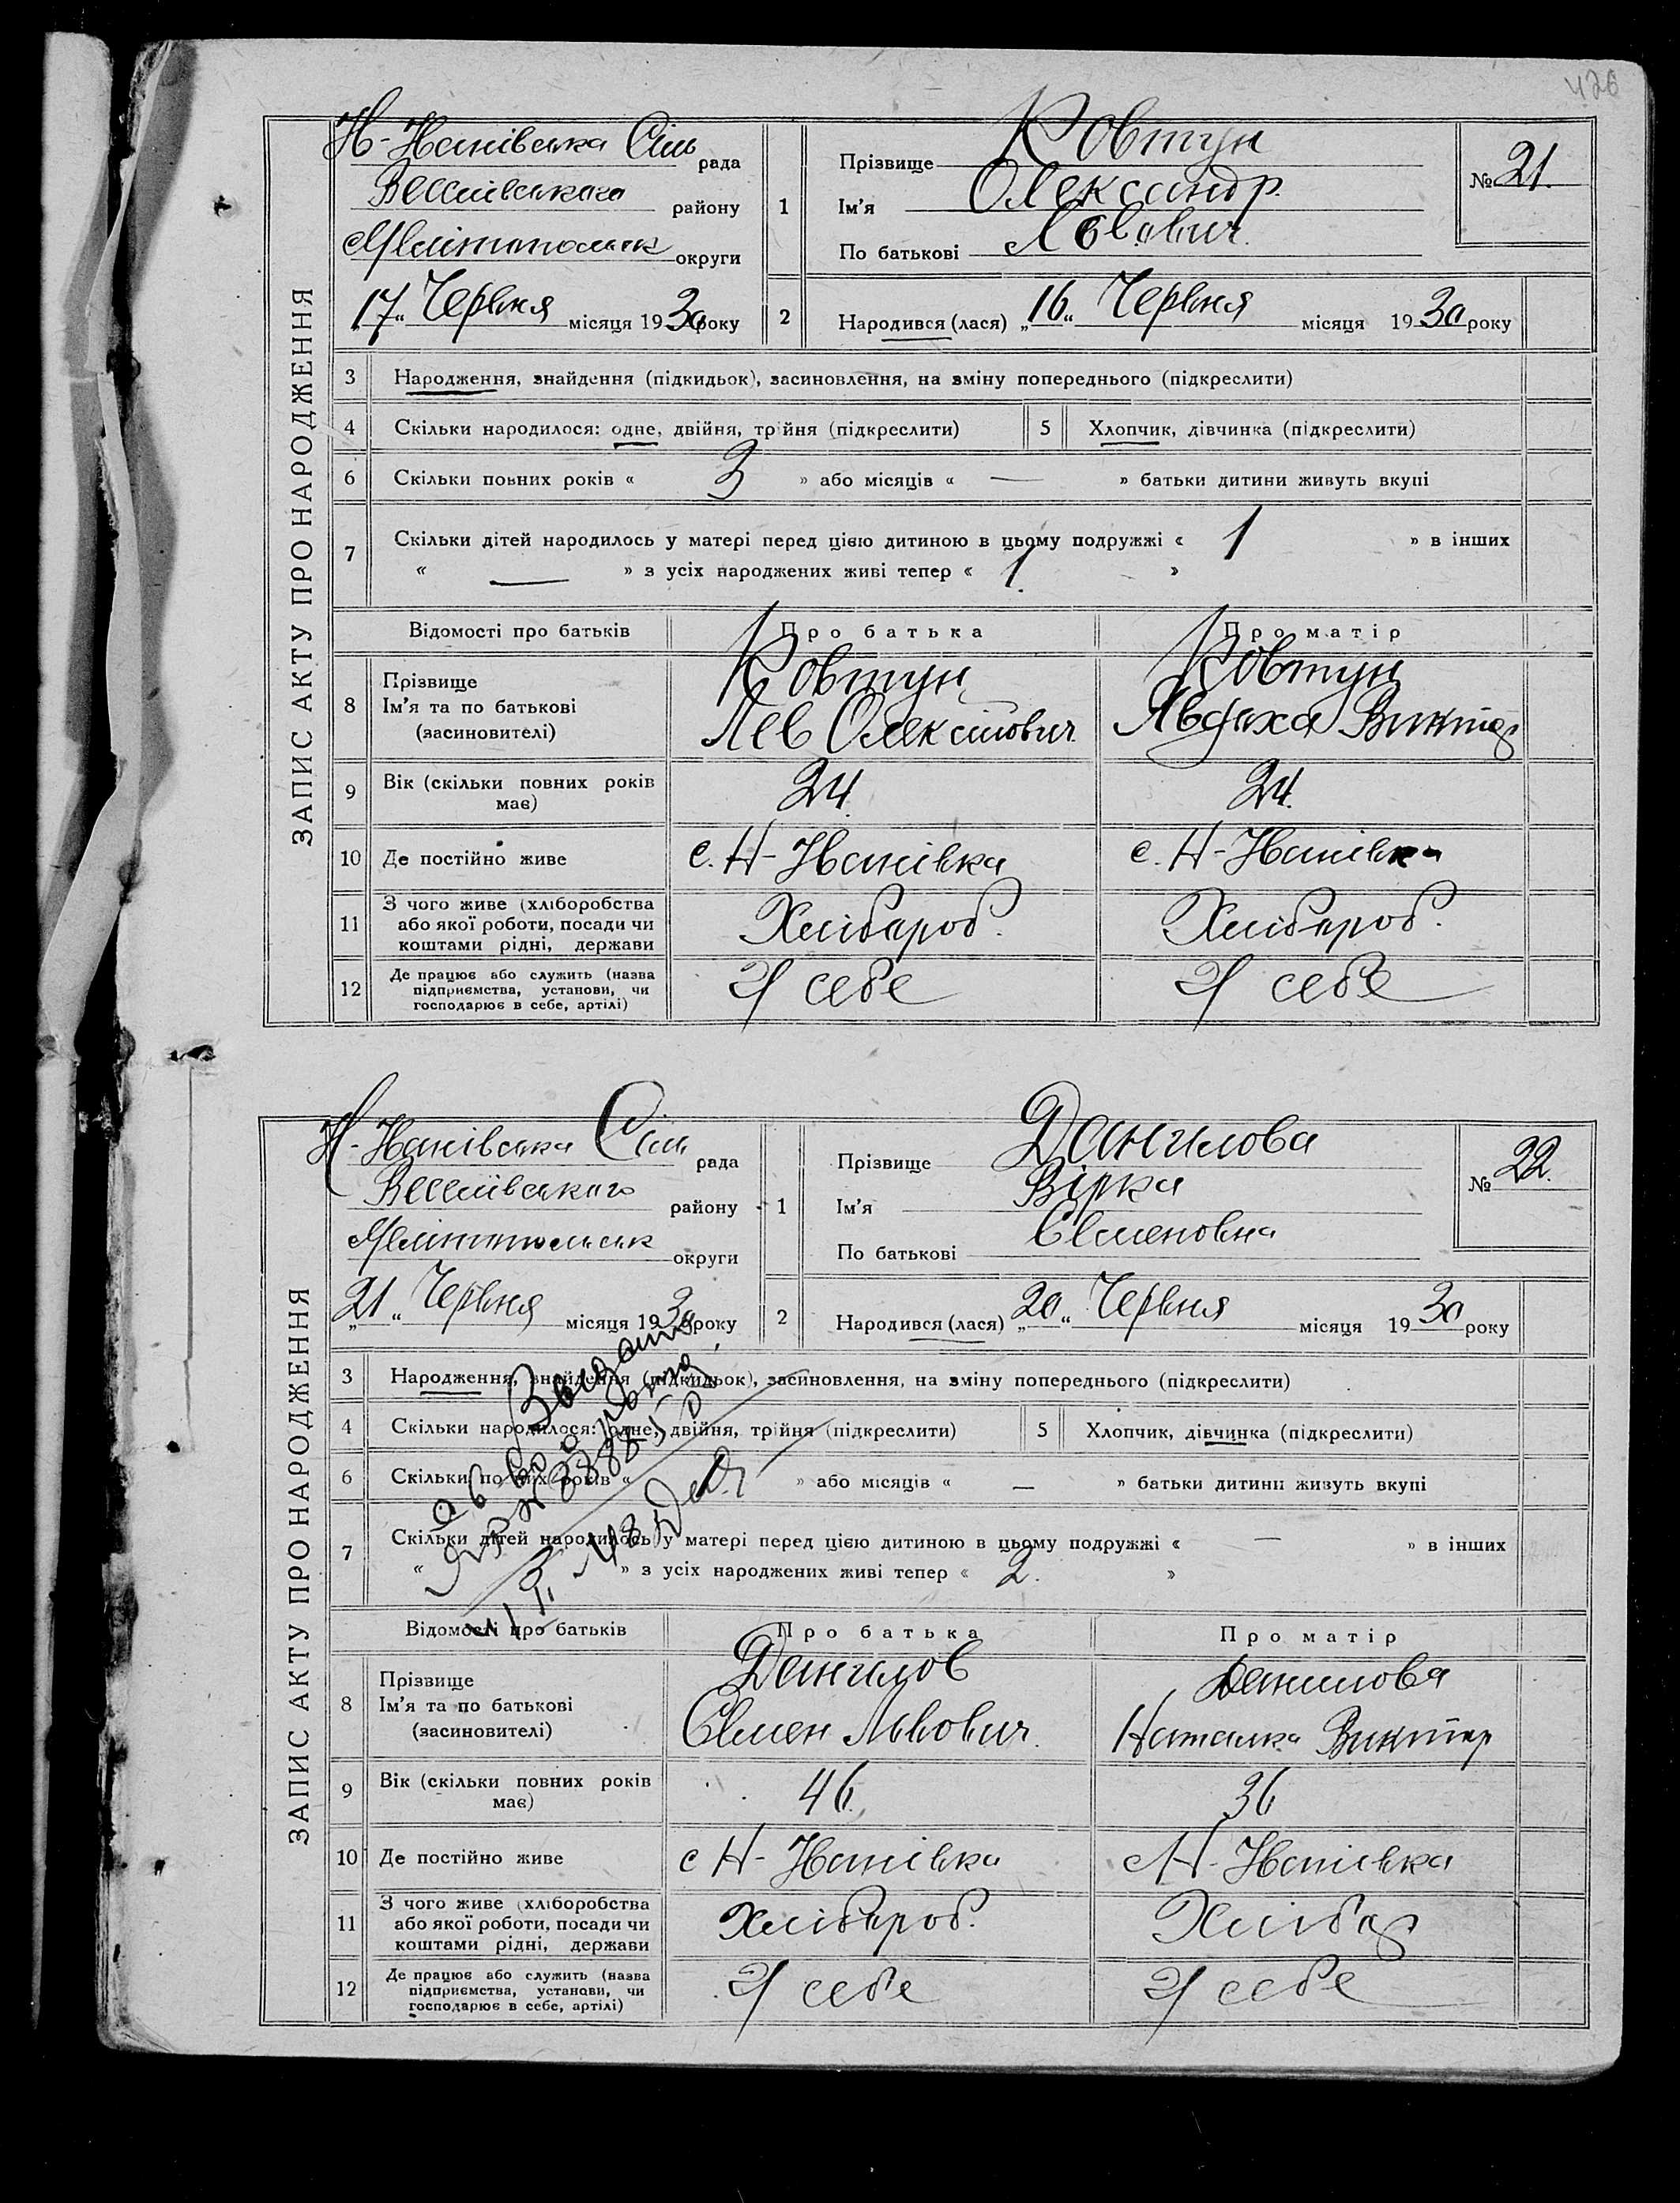 426
ЗАПИС АКТУ ПРО НАРОДЖЕННЯ
Н-Іванівська Сіль рада
Веселівського району
Мелітопольськ округи
„17“ Червня місяця 1930 року
1 Прізвище Ковтун
Ім'я Олександр.
По батькові Львович.
№ 21.
2 Народився (лася) „16“ Червня місяця 1930 року
3 Народження, знайдення (підкидьок), засиновлення, на зміну попереднього (підкреслити)
4 Скільки народилося: одне, двійня, трійня (підкреслити)
5 Хлопчик, дівчинка (підкреслити)
6 Скільки повних років « 3 » або місяців « — » батьки дитини живуть вкупі
7 Скільки дітей народилось у матері перед цією дитиною в цьому подружжі « 1 » в інших
« — » з усіх народжених живі тепер « 1. »
Відомості про батьків Про батька Про матір
8 Прізвище Ковтун Ковтун
Ім'я та по батькові Лев Олексійович Явдоха Виктор
(засиновителі)
9 Вік (скільки повних років має) 24. 24.
10 Де постійно живе с. Н-Іванівка с. Н-Іванівка
11 З чого живе (хліборобства
або якої роботи, посади чи Хлібороб. Хлібороб.
коштами рідні, держави
12 Де працює або служить (назва
підприємства, установи, чи У себе У себе
господарює в себе, артілі)
ЗАПИС АКТУ ПРО НАРОДЖЕННЯ
Н-Іванівська Сіль рада
Веселівського району
Мелітопольськ округи
„21“ Червня місяця 1930 року
1 Прізвище Данилова
Ім'я Вірка
По батькові Семеновна
№ 22.
2 Народився (лася) „20“ Червня місяця 1930 року
3 Народження, знайдення (підкидьок), засиновлення, на зміну попереднього (підкреслити)
4 Скільки народилося: одне, двійня, трійня (підкреслити)
5 Хлопчик, дівчинка (підкреслити)
6 Скільки повних років « » або місяців « — » батьки дитини живуть вкупі
7 Скільки дітей народилось у матері перед цією дитиною в цьому подружжі « — » в інших
« » з усіх народжених живі тепер « 2. »
Відомості про батьків Про батька Про матір
8 Прізвище Данилов Данилова
Ім'я та по батькові Семен Львович. Наталка Виктор
(засиновителі)
9 Вік (скільки повних років має) 46. 36
10 Де постійно живе с Н-Іванівка с Н-Іванівка
11 З чого живе (хліборобства
або якої роботи, посади чи Хлібороб. Хлібор
коштами рідні, держави
12 Де працює або служить (назва
підприємства, установи, чи У себе У себе
господарює в себе, артілі)